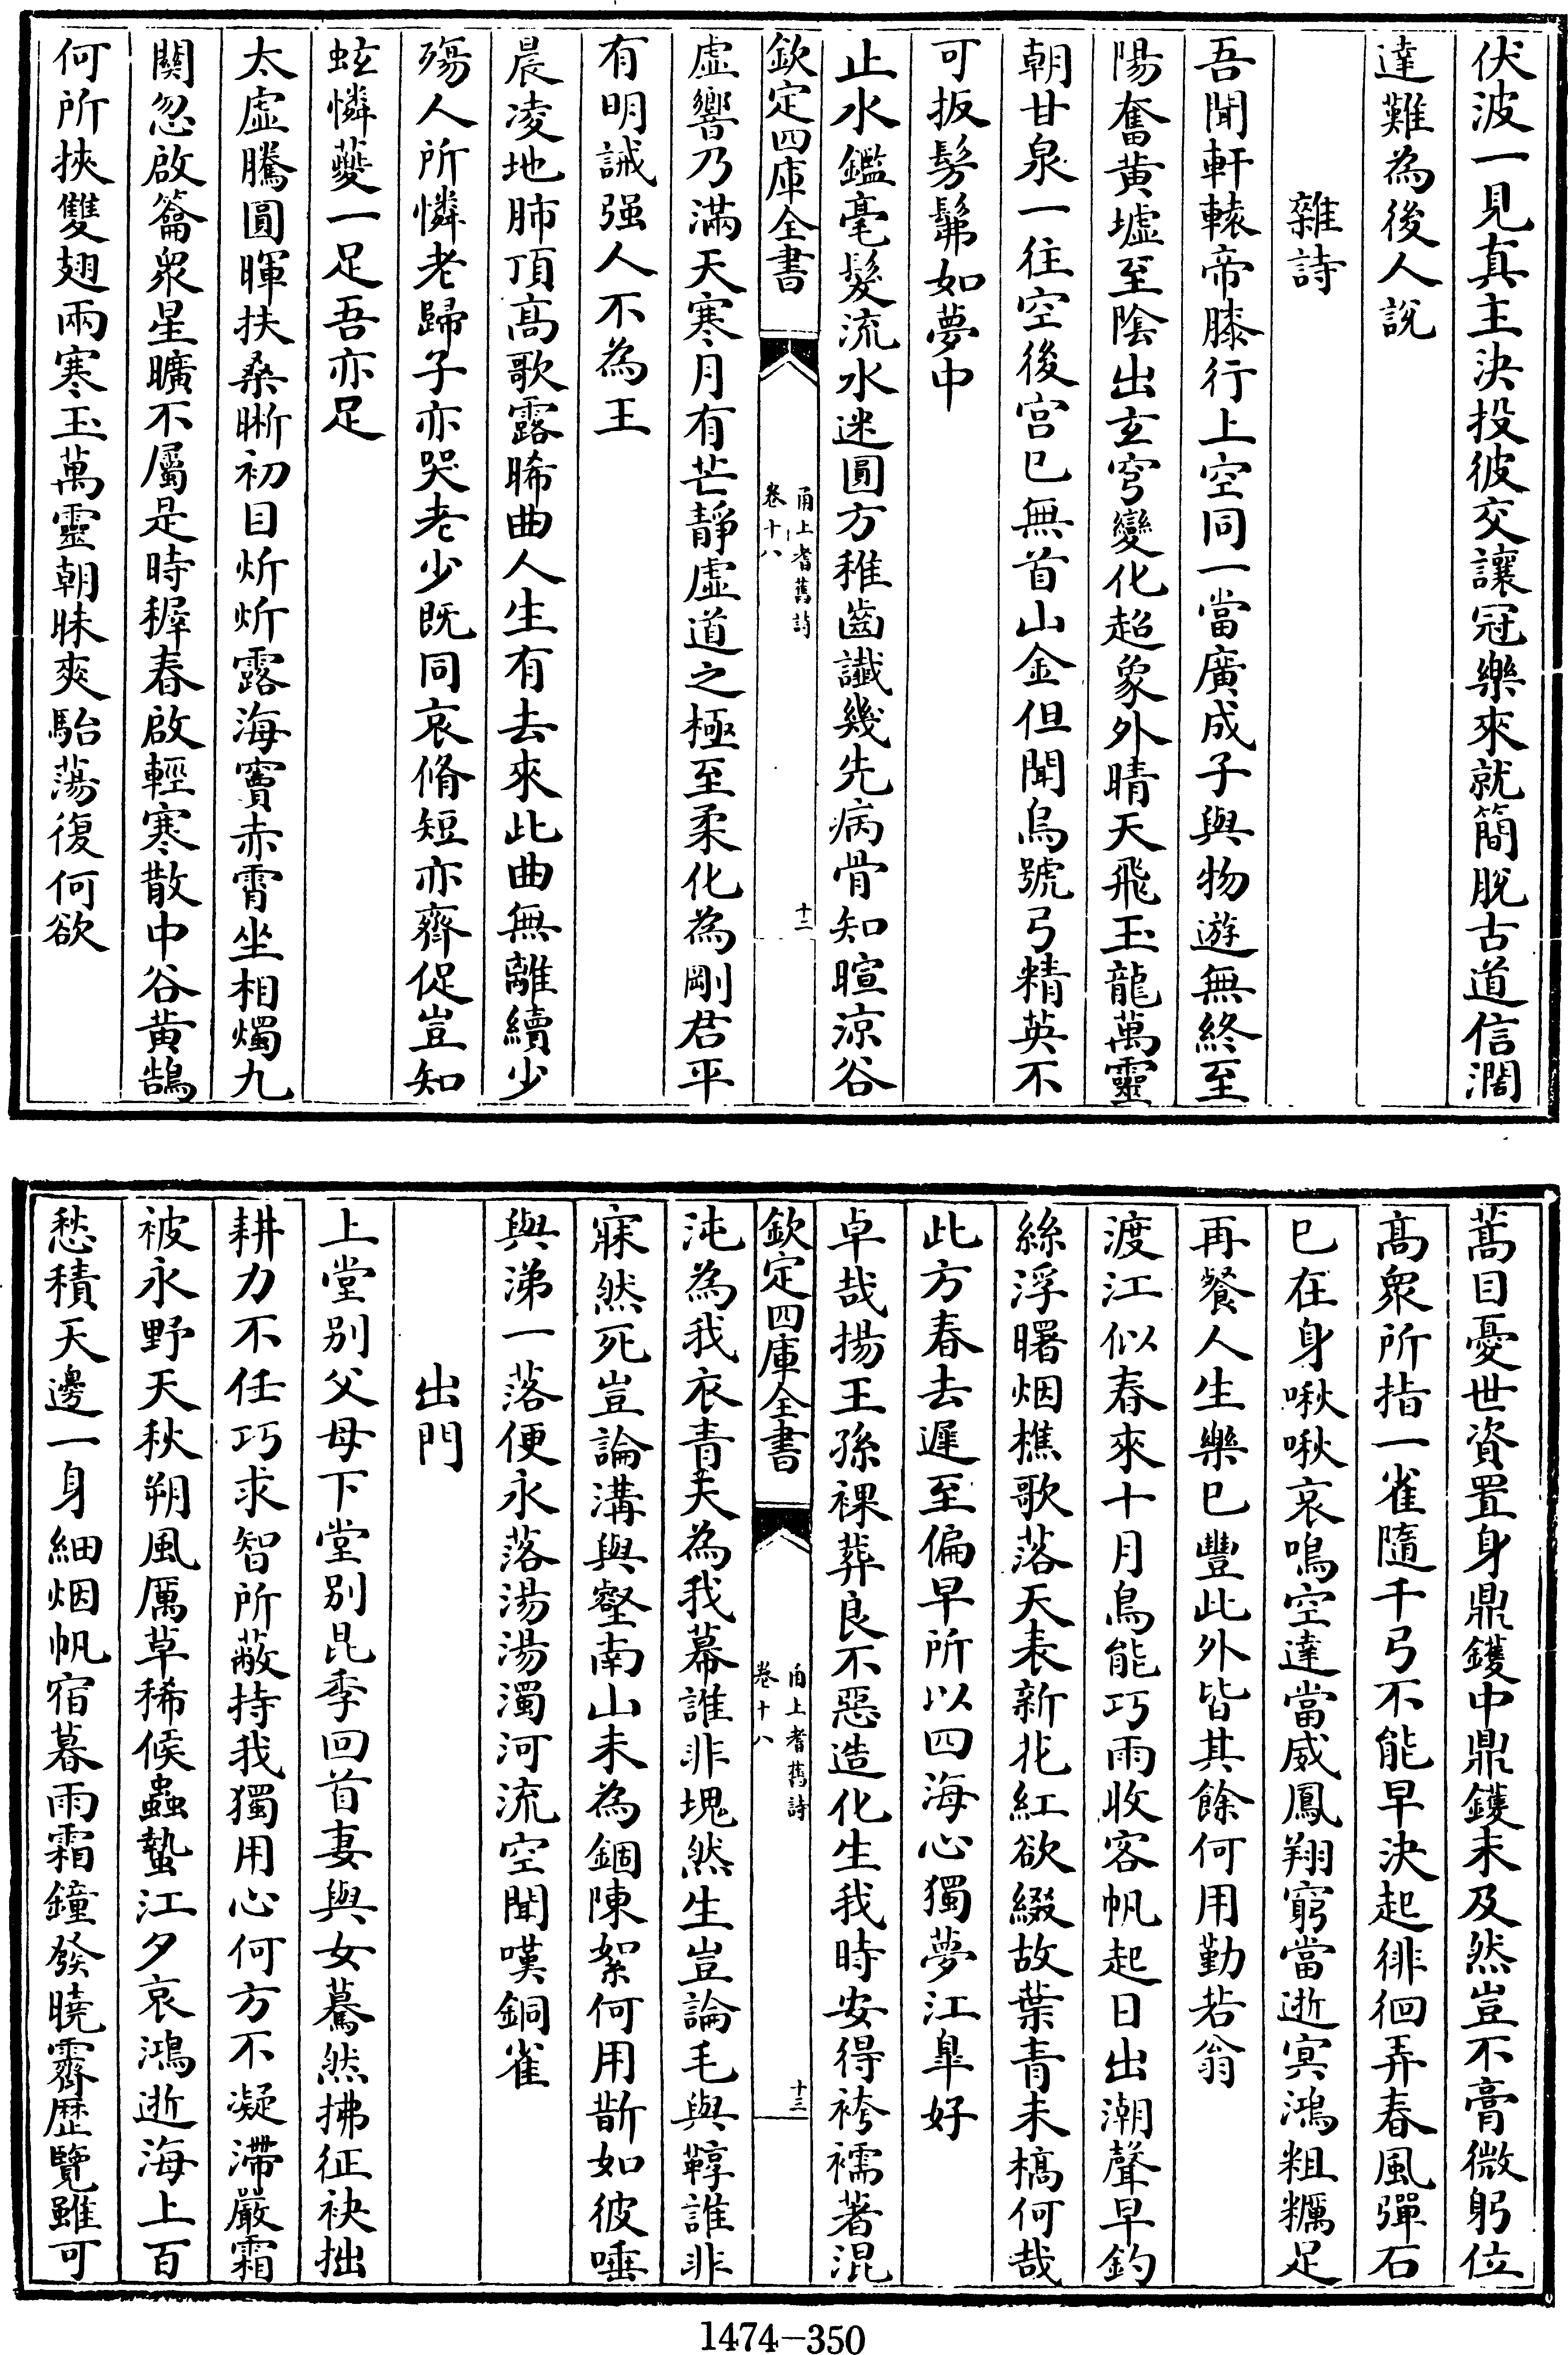 伏波一見真主決投彼交讓冠樂來就簡脫古道信濶
達難為後人說
雜詩
吾聞軒轅帝膝行上空同一當廣成子與物遊無終至
陽奮黄墟至隂出玄穹變化超象外晴天飛玉龍萬靈
朝甘泉一往空後宫已無首山金但聞烏號弓精英不
可扳髣髴如夢中
止水鑑毫髮流水迷圓方稚齒讖幾先病骨知暄涼谷
欽定四庫全書
甬上耆舊詩
卷十八
十二
虛響乃滿天寒月有芒靜虛道之極至柔化為剛君平
有明誡强人不為王
晨凌地肺頂高歌露晞曲人生有去來此曲無離續少
殤人所憐老歸子亦哭老少既同哀脩短亦齊促豈知
蚿憐夔一足吾亦足
太虛騰圓暉扶桑晰初目炘炘露海竇赤霄坐相燭九
闗忽啟籥衆星曠不屬是時穉春啟輕寒散中谷黄鵠
何所挾雙翅兩寒玉萬靈朝昧爽駘蕩復何欲
蒿目憂世資置身鼎鑊中鼎鑊未及然豈不膏微躬位
高衆所指一雀隨千弓不能早決起徘徊弄春風彈石
已在身啾啾哀鳴空達當威鳳翔窮當逝冥鴻粗糲足
再餐人生樂已豐此外皆其餘何用勤若翁
渡江似春來十月鳥能巧雨收客帆起日出潮聲早釣
絲浮曙烟樵歌落天表新花紅欲綴故葉青未槁何哉
此方春去遲至偏早所以四海心獨夢江臯好
卓哉揚王孫裸葬良不惡造化生我時安得袴襦著混
欽定四庫全書
甬上耆舊詩
卷十八
十三
沌為我衣青天為我幕誰非塊然生豈論毛與鞟誰非
寐然死豈論溝與壑南山未為錮陳絮何用斮如彼唾
與涕一落便永落湯湯濁河流空聞嘆銅雀
出門
上堂别父母下堂别昆季回首妻與女驀然拂征袂拙
耕力不任巧求智所蔽持我獨用心何方不凝滯嚴霜
被永野天秋朔風厲草稀候蟲蟄江夕哀鴻逝海上百
愁積天邊一身細烟帆宿暮雨霜鐘發曉霽歴覽雖可
1474—350